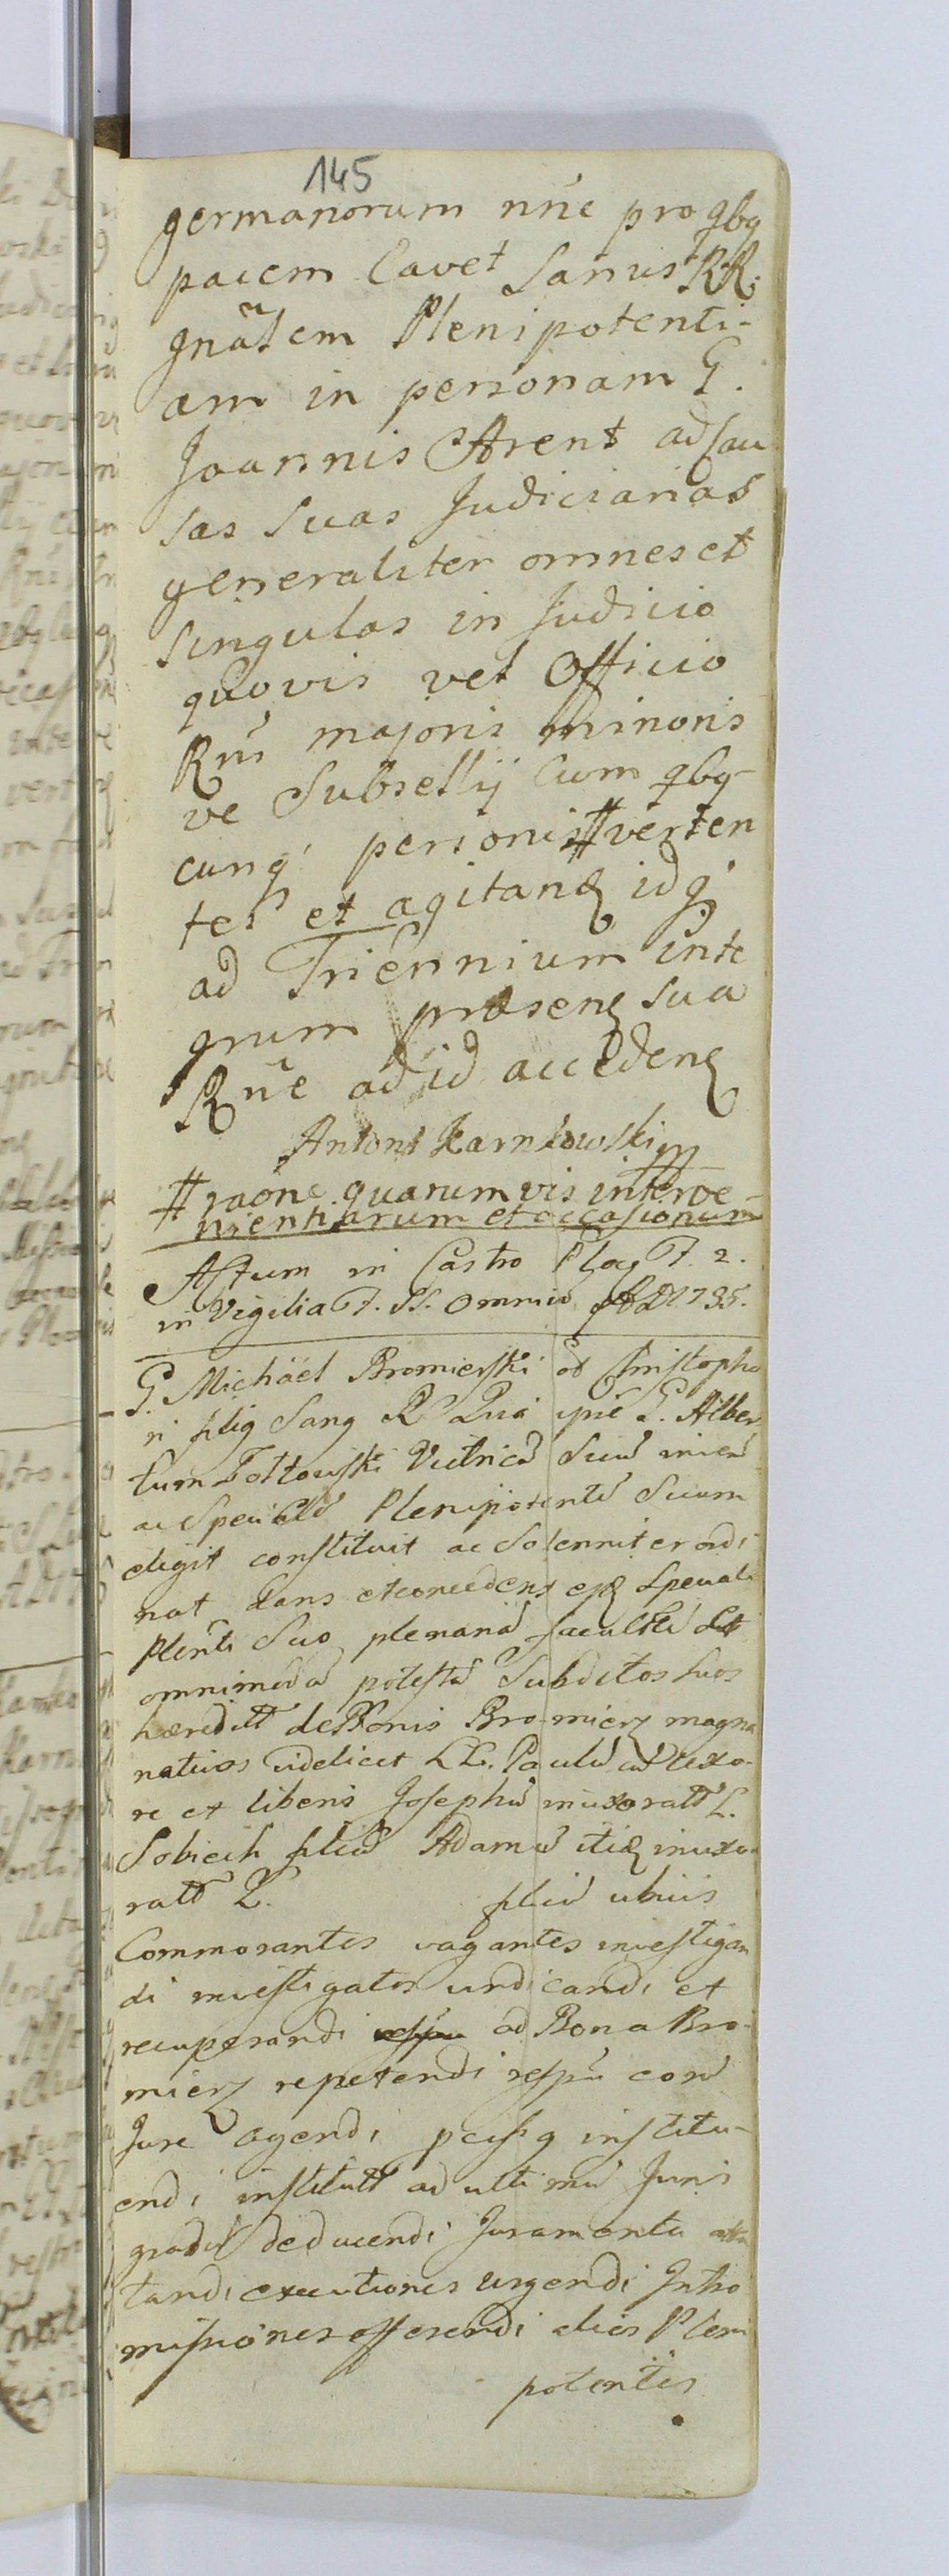 145
germanorum nn̄e pro qbq
pacem Cavet Sanus RR.
Gnãlem Plenipotenti-
am in personam G.
Joannis Arent ad Cau
sas suas Judiciarias
generaliter omnes et
singulas in Judicio
quovis vel Officio
Rni majoris minoris
ve Subsellij Cum qbq-
cunq' personis # verten
tes et agitanđ idq'
ad Triennium inte
grum præsenꝭ sua
Rn̄e ad id accedenꝭ
Antoni Karnkowski
# raõne quarumvis interve-
nientiarum et occasionum
Actum in Castro Ploc F. 2.
in Vigilia F. SS. omniũ AD 1735.
G. Michäel Bromierski ol Christopho
ri fili9 Sang R Quia ipse G. Alber
tum Tottowski Vitricũ Suũ
ac Specialẽ Plenipotentẽ Suum
eligit constituit ac Solenniter ordi
nat dans et concedens Speciali
Plenti Suo plenariã facultẽ et
omnimodã potestẽ Subditos suos
hæreditt de Bonis Bromierz magna
nativos videlicet LL. Paulũ cũ Uxo-
re et liberis Josephũ inuxoratt L.
Sobiech filiũ Adamũ itiđ inuxo-
ratt L. filiũ ubivis
Commorantes vagantes investigan
di investigatos vindicandi et
recuperandi ad Bona Bro-
mierz repetendi respũ corũ
Jure agendi institu-
endi institutt ad ultimũ Juris
gradũ deducendi Juramenta
tandi executiones urgendi Intro
missiones offerendi alios Pleni
potentes